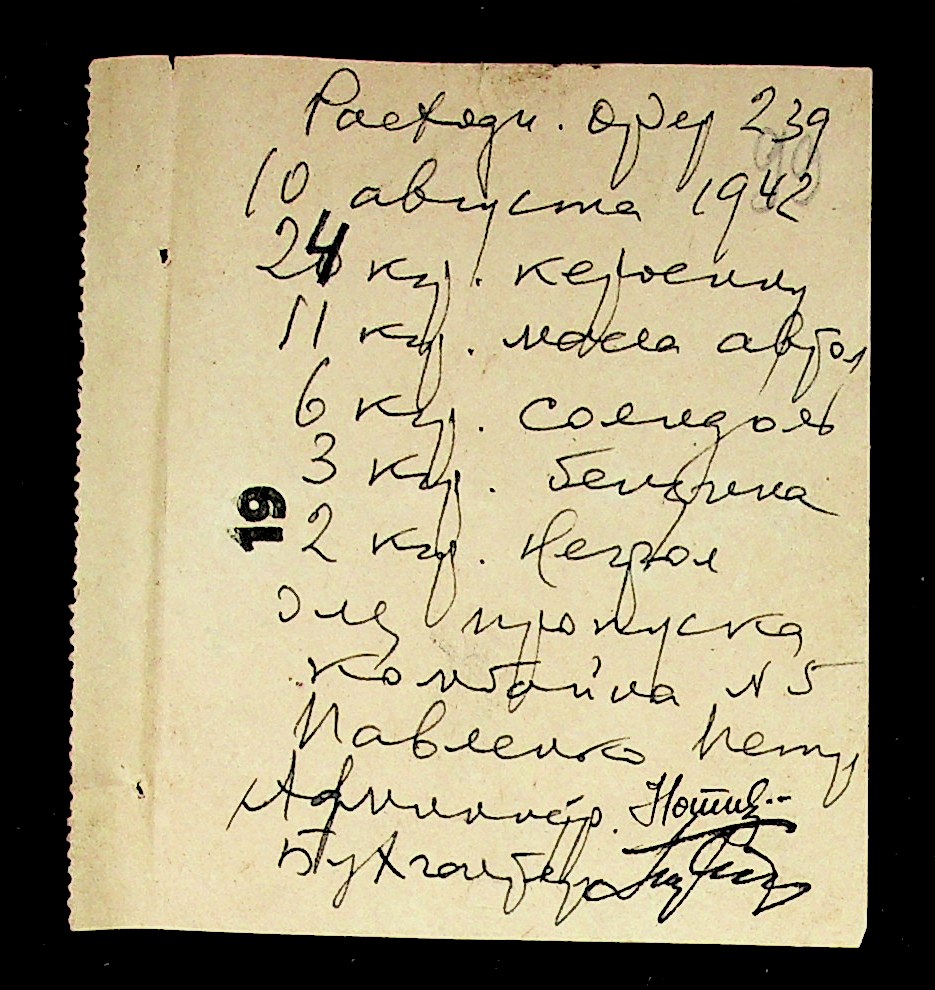 Расходн. ордер 239
99
10 августа 1942
24 кгр. керосину
11 кгр. масла автол
6 кгр. солидоль
3 кгр. бензина
19
2 кгр. Негрол
для пропуска
комбайна N 5
Павленко Петру
Администр.
Бухгалтер